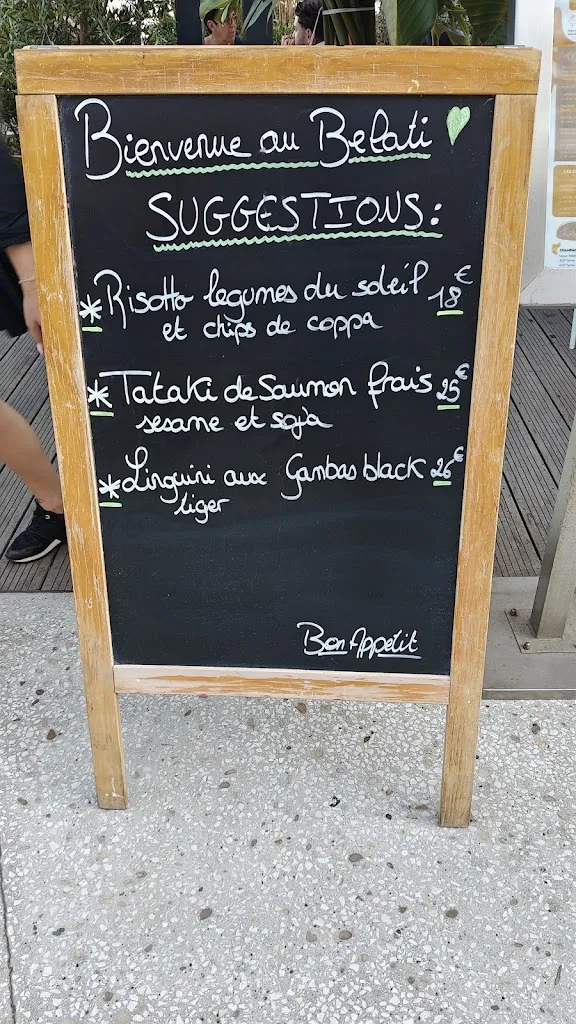 Bienvenue au Belati
SUGGESTIONS:
*Risotto legumes du soleil 18€
et chips de coppa
*Tataki de Saumon frais 25€
sesame et soja
*Linguini aux Gambas black 26€
tiger
Bon Appetit